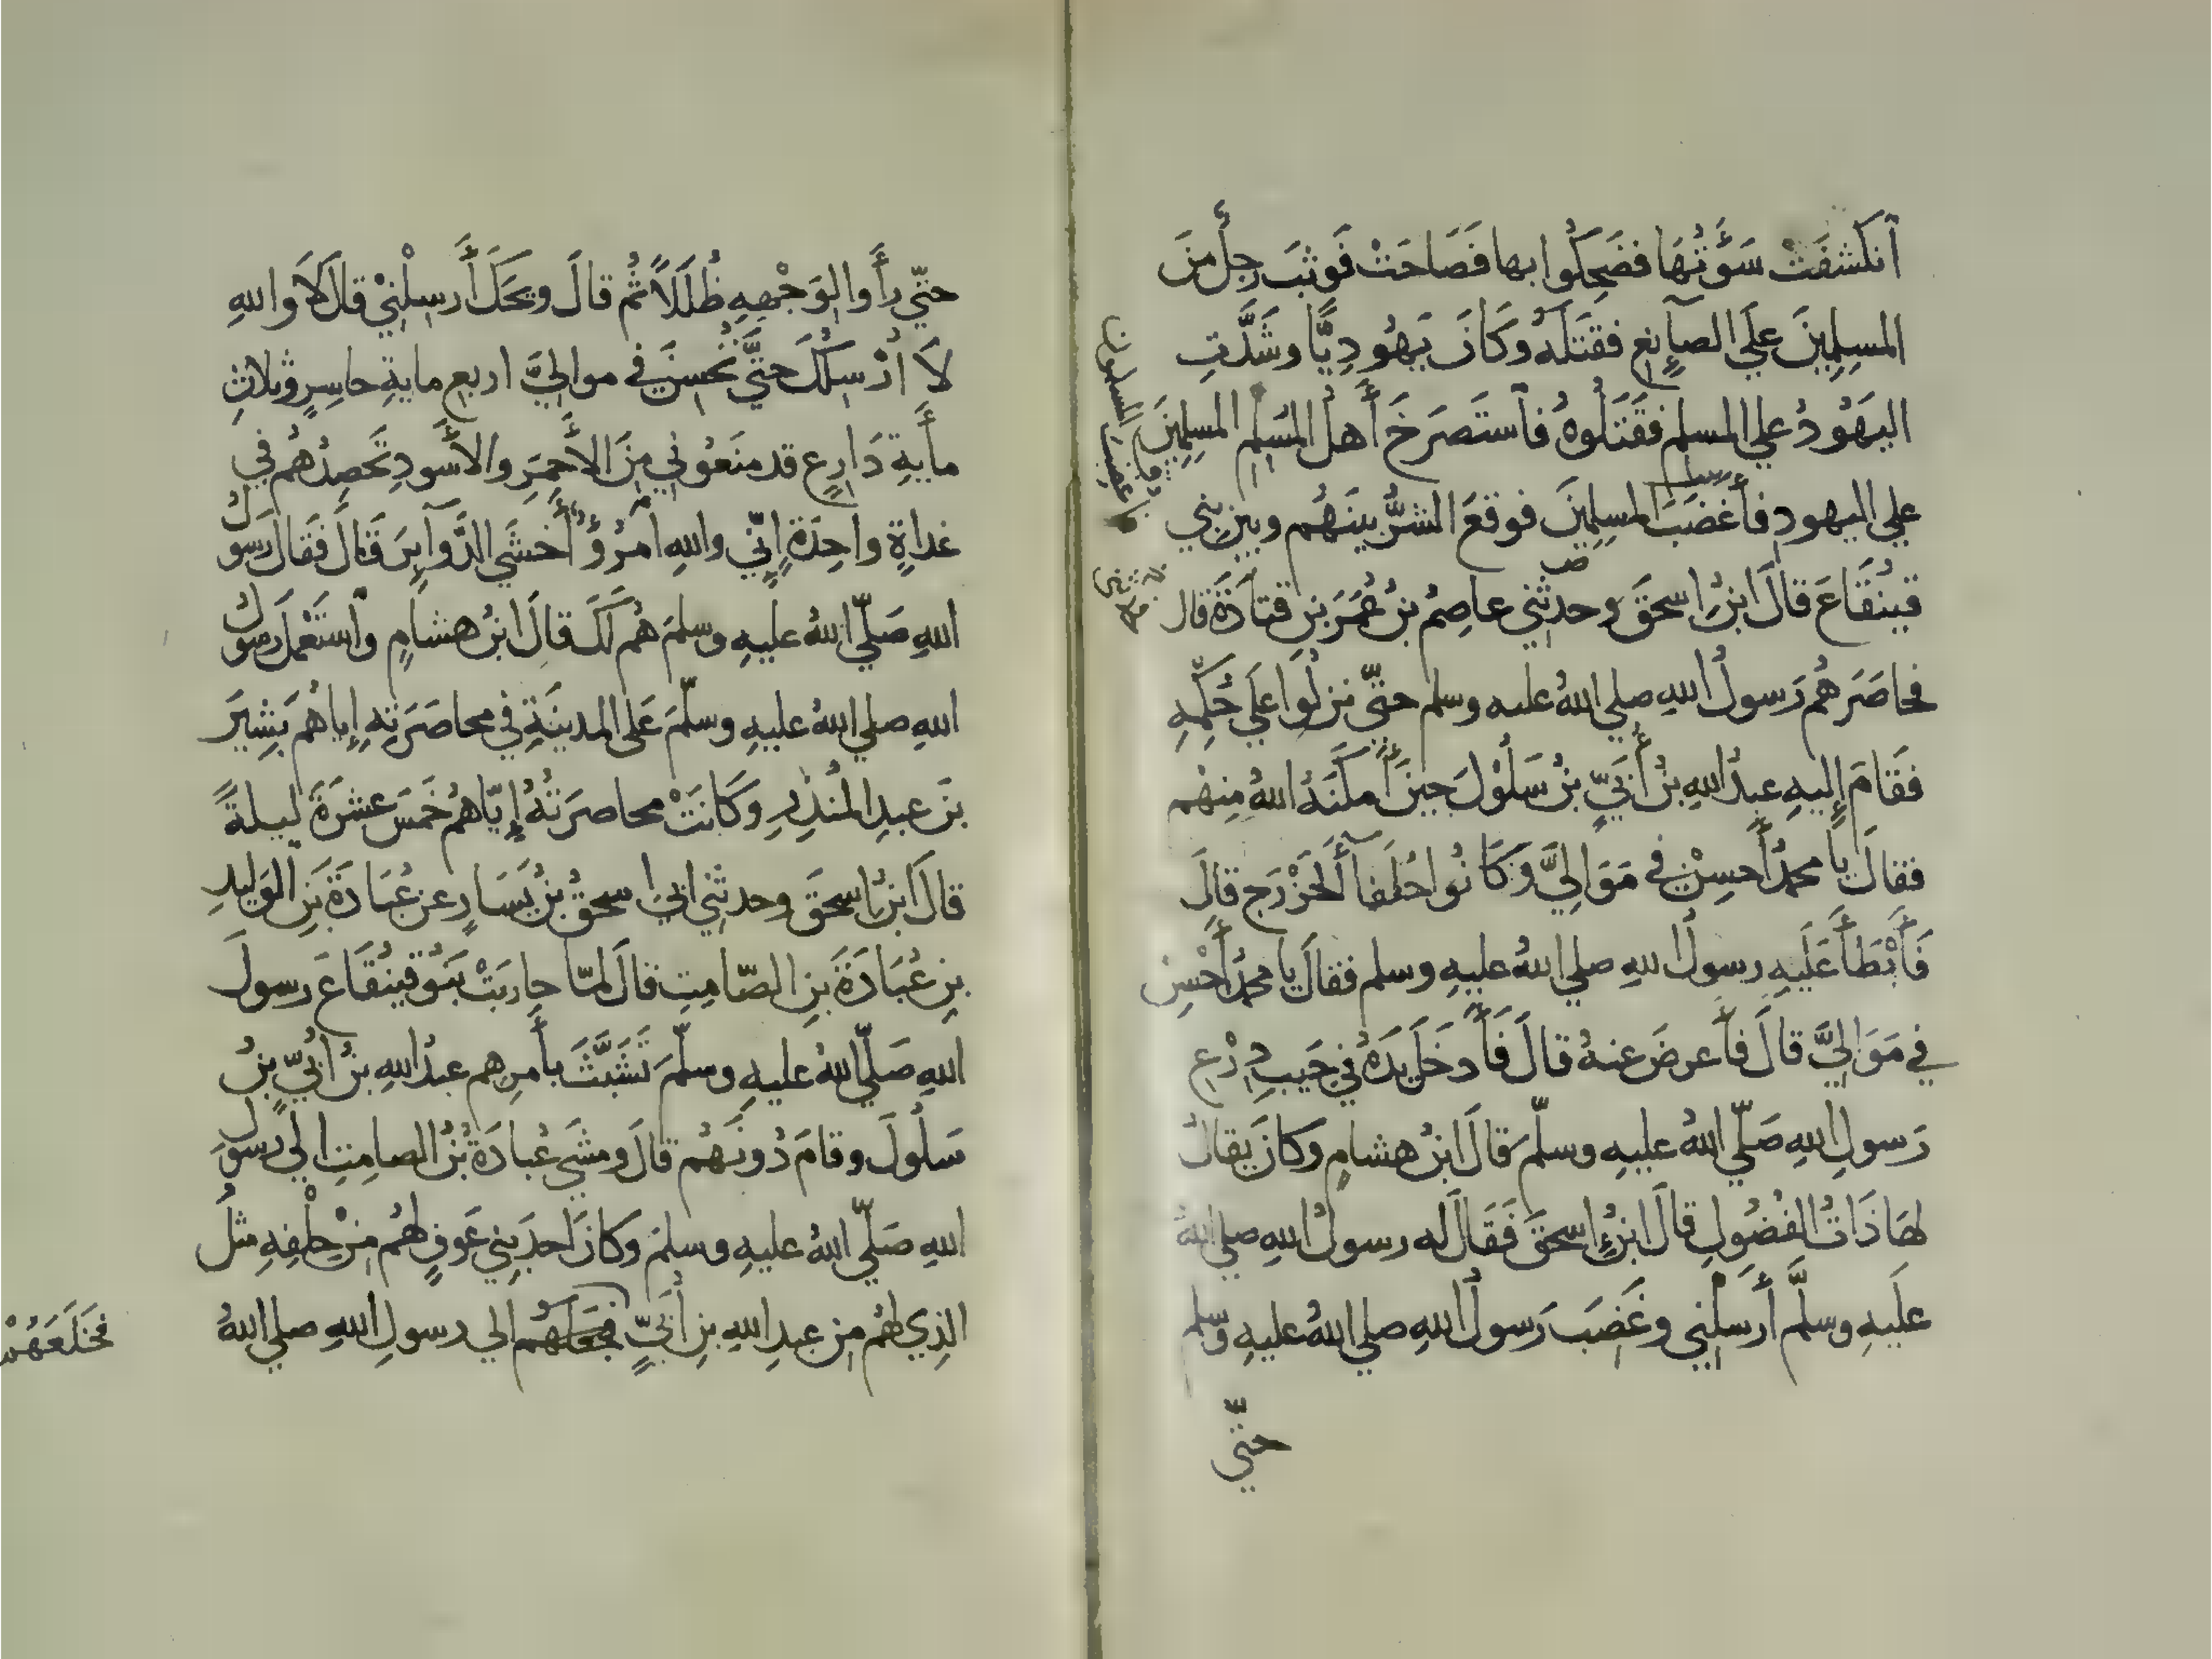 ٱنكَشَفَتْ سَوْءَتُهَا فضَحِكُوا بها فَصَاحَتْ فَوثبَ رجُلٌ مِنَ
المسلِمِينَ علَي الصآئغِ فقتَلَهُ وكَانَ يَهُودِيًّا وشَدَّتِ
اليَهُودُ علي المسلمِ فقَتَلُوهُ فٱستَصرَخَ أَهلُ المُسْلِمِ المسلِمِينَ
علي اليهودِ فأَغضَبَ المسلِمِينَ فوقعَ الشرُّ بينَهُم وبين بني
قينُقَاعَ قالَ ابنُ إسحقَ وحدثني عاصِمُ بنُ عُمَرَ بنِ قتادَةَ قال
فحاصَرهُم رَسولُ اللهِ صلي اللهُ عليه وسلم حتّي نزلُوا علَي حُكمِهِ
فقَامَ إليهِ عبدُ اللهِ بنُ أُبَيِّ بنُ سَلُوْلَ حِينَ أَمكَنَهُ اللهُ مِنهُم
فقالَ يا محمدُ أَحسِنْ في مَوَالِيَّ وكَانُوا حُلَفآءَ الخَزْرَجِ قالَ
فَأَبْطَأَ عَلَيهِ رسولُ اللهِ صلي اللهُ عليهِ وسلم فقالَ يا محمدُ أَحْسِنْ
في مَوَالِيَّ قالَ فأَعرضَ عنهُ قالَ فَأَدخَلَ يَدَهُ في جَيبِ دِرْعِ
رَسولِ اللهِ صَلّي اللهُ عليهِ وسلّمَ قالَ ابنُ هشامٍ وكانَ يقالُ
لهَا ذَاتُ الفُضُولِ قالَ ابنُ إسحقَ فَقَالَ له رسولُ اللهِ صلي اللهُ
علَيهِ وسلَّمَ أَرسِلْنِي وغَضِبَ رَسولُ اللهِ صلي اللهُ عليهِ وسلم
حتّي
المسلمون
حتّي رأَوا لوَجْهِهِ ظُلَلاً ثُم قالَ ويحَكَ أَرسِلْنِيْ قالَ لاَ واللهِ
لاَ أُرْسِلُكَ حتَّي تُحْسِنَ في مواليَّ اربع مايةِ حاسِرٍ وثلاثِ
مأيةِ دَارِعٍ قد منَعُوني مِنَ الأَحمَرِ والأَسْودِ تَحصِدُهُم في
غداةٍ واحِدَةٍ إنّي واللهِ امرُؤٌ أَخشَي الدَّوآئِرَ قالَ فقَالَ رسول
اللهِ صَلّي اللهُ عليهِ وسلمَ هُم لَكَ قالَ ابنُ هشامٍ وٱستَعْملَ رسول
اللهِ صلي اللهُ عليهِ وسلّمَ عَلَي المدينَةِ في محاصَرَتِهِ إياهُم بَشِيرَ
بنَ عبدِ المُنذِرِ وكَانَتْ محاصرَتُهُ إيّاهُم خَمسَ عشرَةَ ليلةً
قالَ ابنُ إسحَقَ وحدثني ابي اسحقُ بنُ يَسَارٍ عن عُبَادَةَ بنِ الوَلِيدِ
بنِ عُبَادَةَ بنِ الصّامِتِ قالَ لمّا حارَبَتْ بَنُو قينُقَاعَ رسولَ
اللهِ صَلّي اللهُ عليهِ وسلّمَ تَشَبَّثَ بأَمرِهم عبدُ اللهِ بنُ أُبيّ بنُ
سَلُولَ وقامَ دُونَهُم قالَ ومشَي عُبادَةُ بنُ الصامِتِ الي رسول
اللهِ صَلّي اللهُ عليهِ وسلمَ وكانَ أَحدَ بني عَوفٍ لهُم مِنْ حِلْفِهِ مثلُ
الذِي لهُم مِن عبدِ اللهِ بنِ أُبَيٍّ فجعلهُم الي رسولِ اللهِ صلي اللهُ
فخَلَعَهُمْ